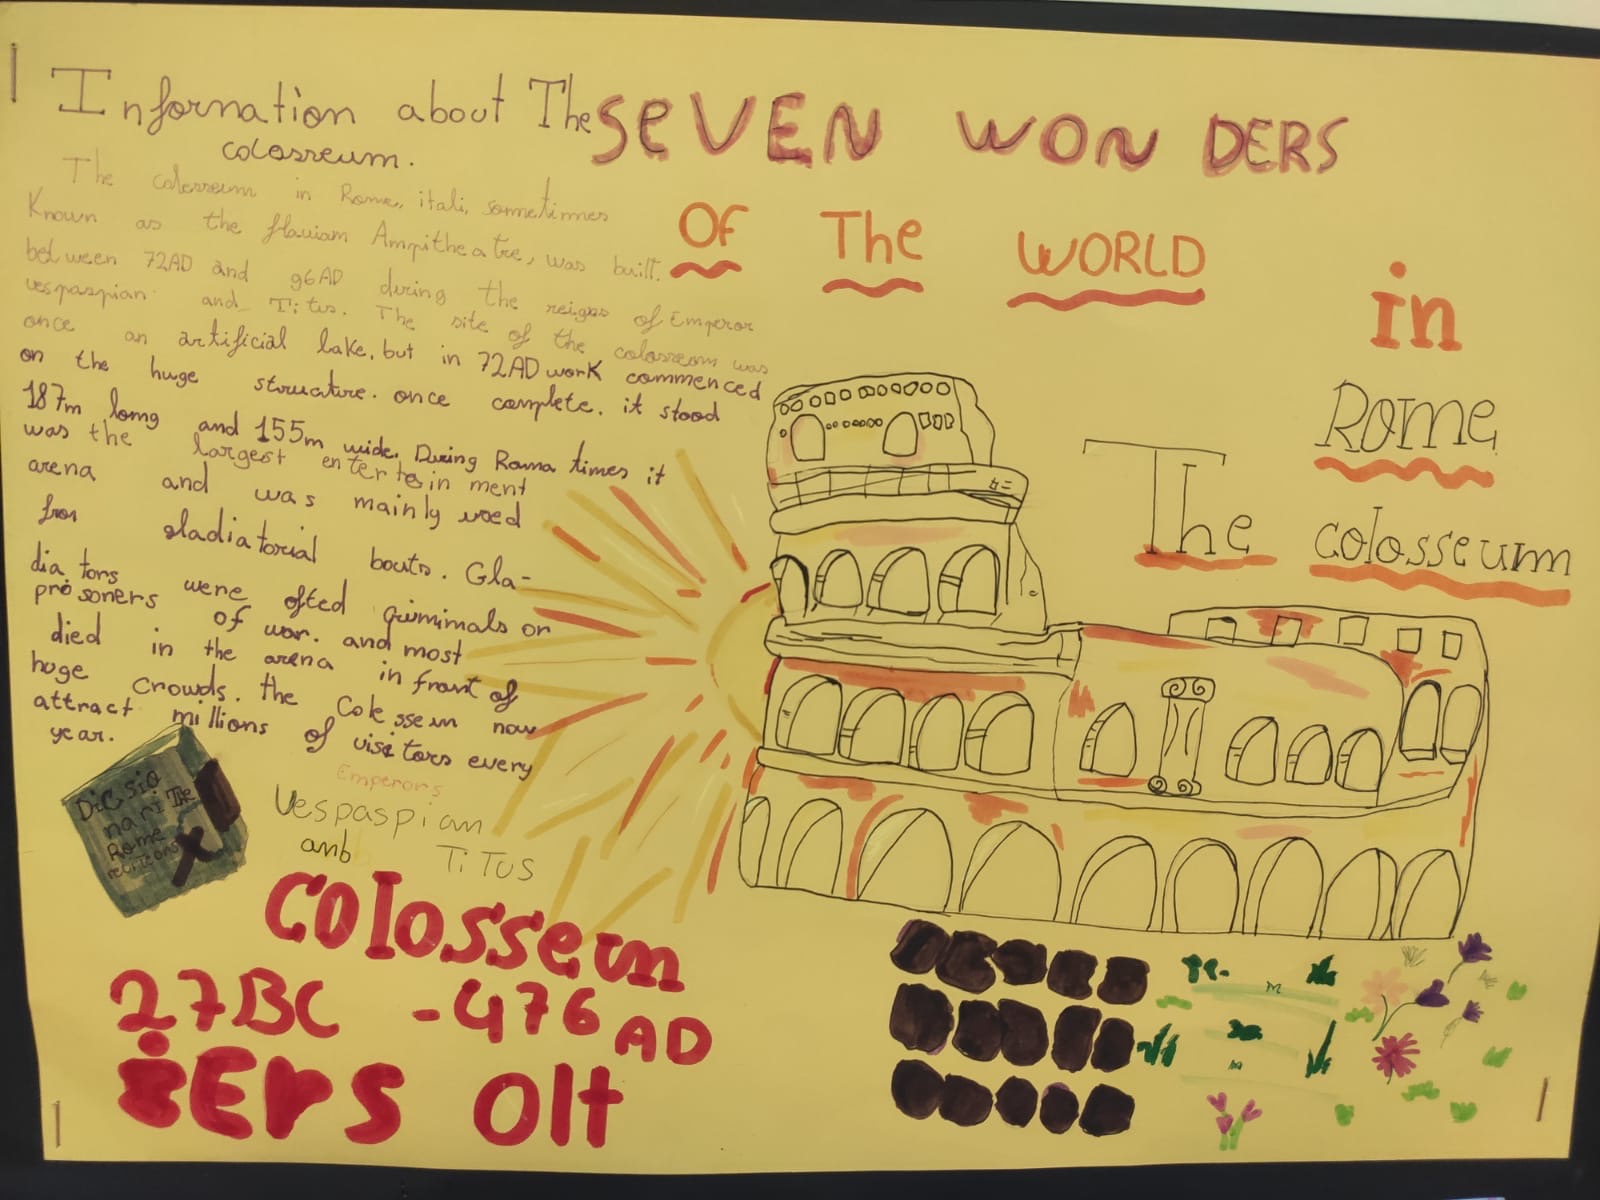 Information about The
colosseum.
SEVEN WONDERS
OF The WORLD
in
Rome
The colosseum
The colesseum in Rome, itali, sometimes
Known as the flauiam Ampitheatre, was built.
between 72AD and 96AD during the reigns of Emperor
vespaspian and Titus. The site of the colosseom was
once an artificial lake, but in 72AD work commenced
on the huge structure. once complete. it stood
187m long and 155m wide. During Roma times it
was the largest entertainment
arena and was mainly used
for gladiatorial bouts. Gla-
diators were ofted criminals or
prosoners of war. and most
died in the arena in front of
huge crowds. the Colessem now
attract millions of visitors every
year.
Dicsio
nari The
Rome
Emperors
Vespaspian
amb TiTUS
Colossem
27BC - 476 AD
iERS Olt